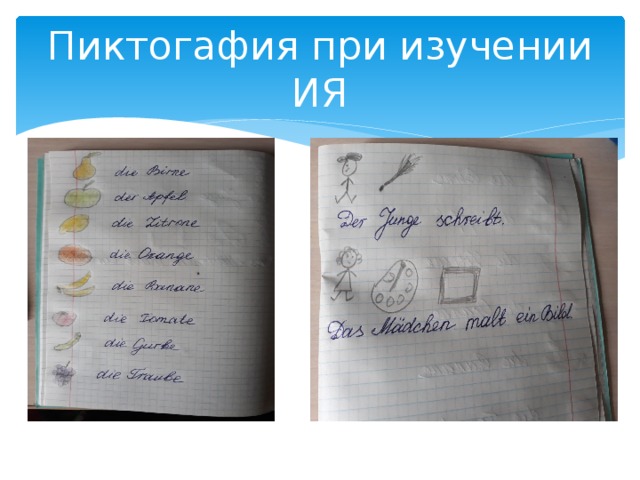 Пиктогафия при изучении
ИЯ
die Birne
der Apfel
die Zitrone
die Orange
die Banane
die Tomate
die Gurke
die Traube
Der Junge schreibt.
Das Mädchen malt ein Bild